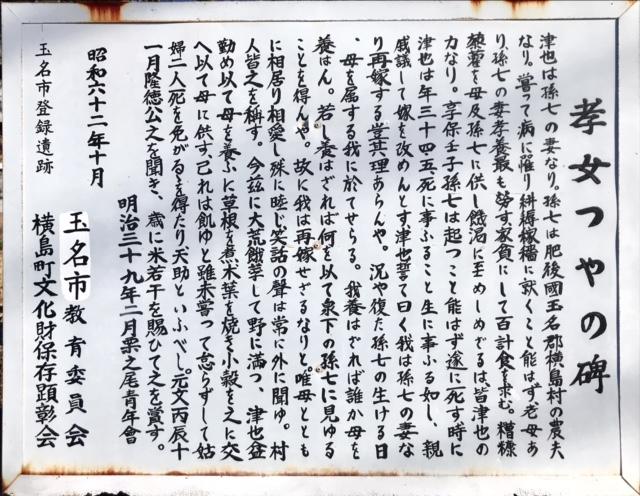 孝女つやの碑
津也は孫七の妻なり。孫七は肥後國玉名郡横島村の農夫
なり。嘗って病に罹り耕縟稼穡に就くこと能はず。老母あ
り、孫七の妻孝養最も努す家貧にして百計食を求む。糟糠
藜藿を母及孫七に供し餓渇に至めしめざるは皆津也の
力なり。享保壬子孫七は起つこと能はず遂に死す時に
津也は年三十四五、死に事ふること生に事ふる如し、親
戚議して嫁を改めんとす津也誓て曰く我は孫七の妻な
り再嫁する豈其理あらんや。況や復た孫七の生ける日
、母を属する我に於てせらる。我養はざれば誰か母を
養はん。若し養はざれば何を以て泉下の孫七に見ゆる
ことを得んや。故に我は再嫁せざるなりと唯母ととも
に相居り相愛し殊に睦じ笑話の聲は常に外に聞ゆ。村
人皆之を稱す。今茲に大荒餓莩して野に滿つ、津也益
勤め以て母を養ふに草根を煮木葉を焼き小穀を之に交
へ以て母に供す己れは飢ゆと雖未嘗って怠らずして姑
婦二人死を免がるを得たり天助といふべし。元文丙辰十
一月隆徳公之を聞き、歳に米若干を賜ひて之を賞す。
明治三十九年二月栗之尾青年會
昭和六十二年十月
玉名市教育委員会
横島町文化財保存顕彰会
玉名市登録遺跡